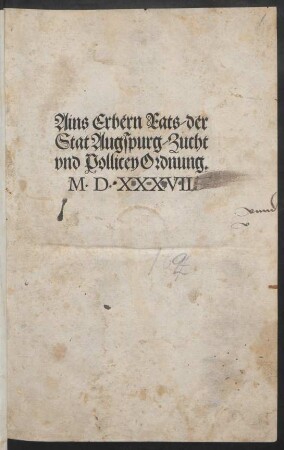 Ains Erbern Rats der
Stat Augspurg Zucht
vnd Pollicey Ordnung.
M. D. XXXVII